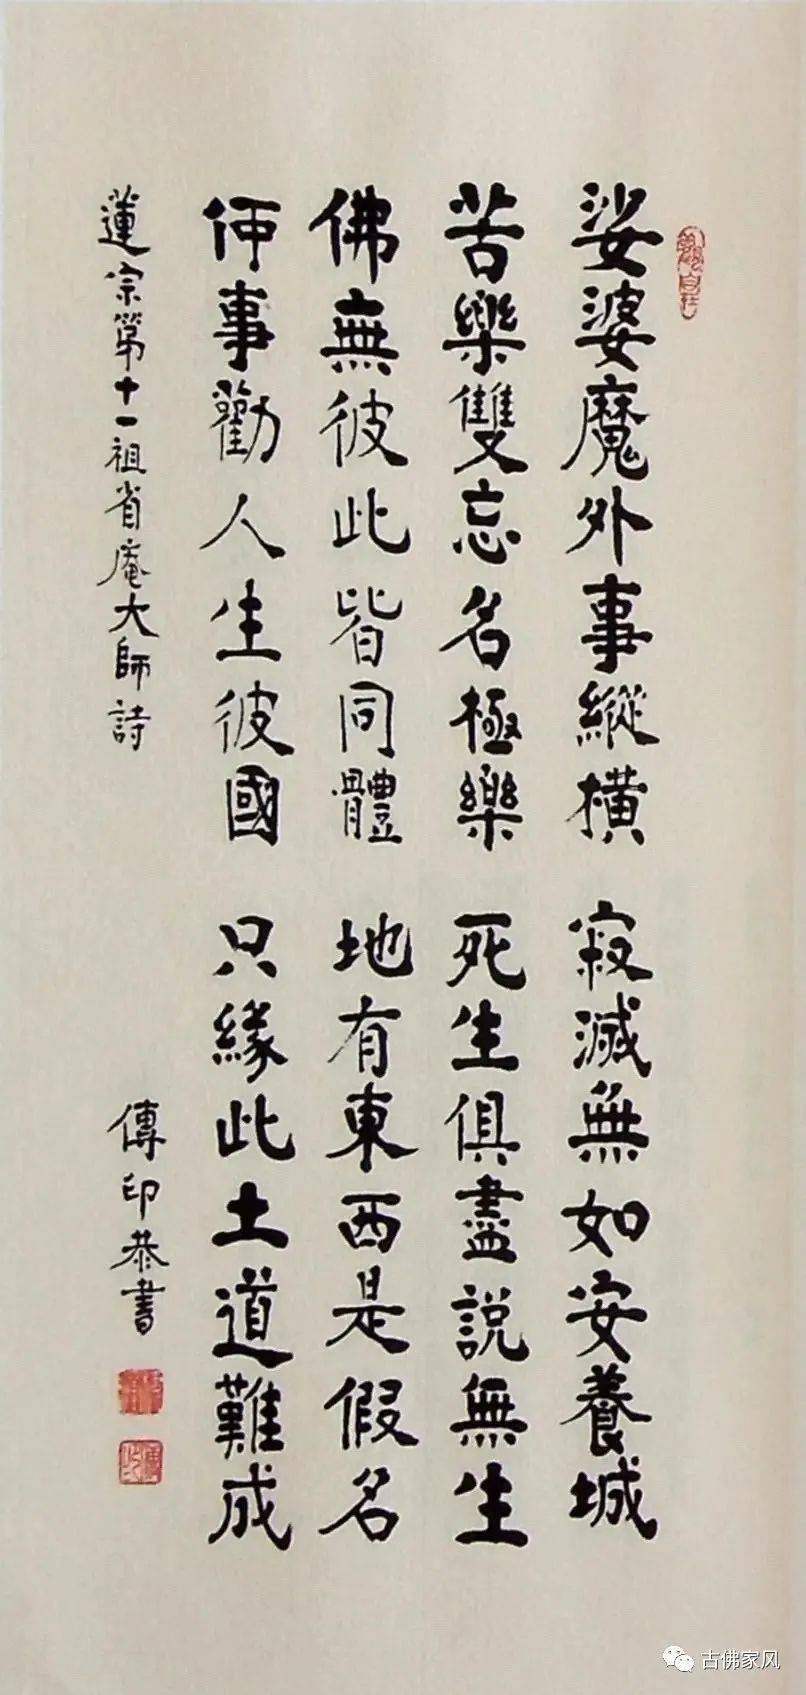 娑婆魔外事縱橫 寂滅無如安養城
苦樂雙忘名極樂 死生俱盡說無生
佛無彼此皆同體 地有東西是假名
何事勸人生彼國 只緣此土道難成
蓮宗第十一祖省庵大師詩
傳印恭書
古佛家风